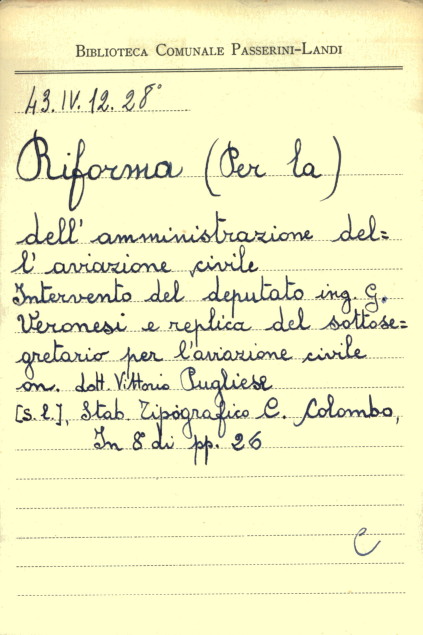 BIBLIOTECA COMUNALE PASSERINI-LANDI
43.IV.12.28°
Riforma (Per la)
dell' amministrazione del=
l' aviazione civile
Intervento del deputato ing. G.
Veronesi e replica del sottose=
gretario per l'aviazione civile
on. dott. Vittorio Pugliese
[s.l.], Stab. Tipografico C. Colombo,
In 8° di pp. 26
C